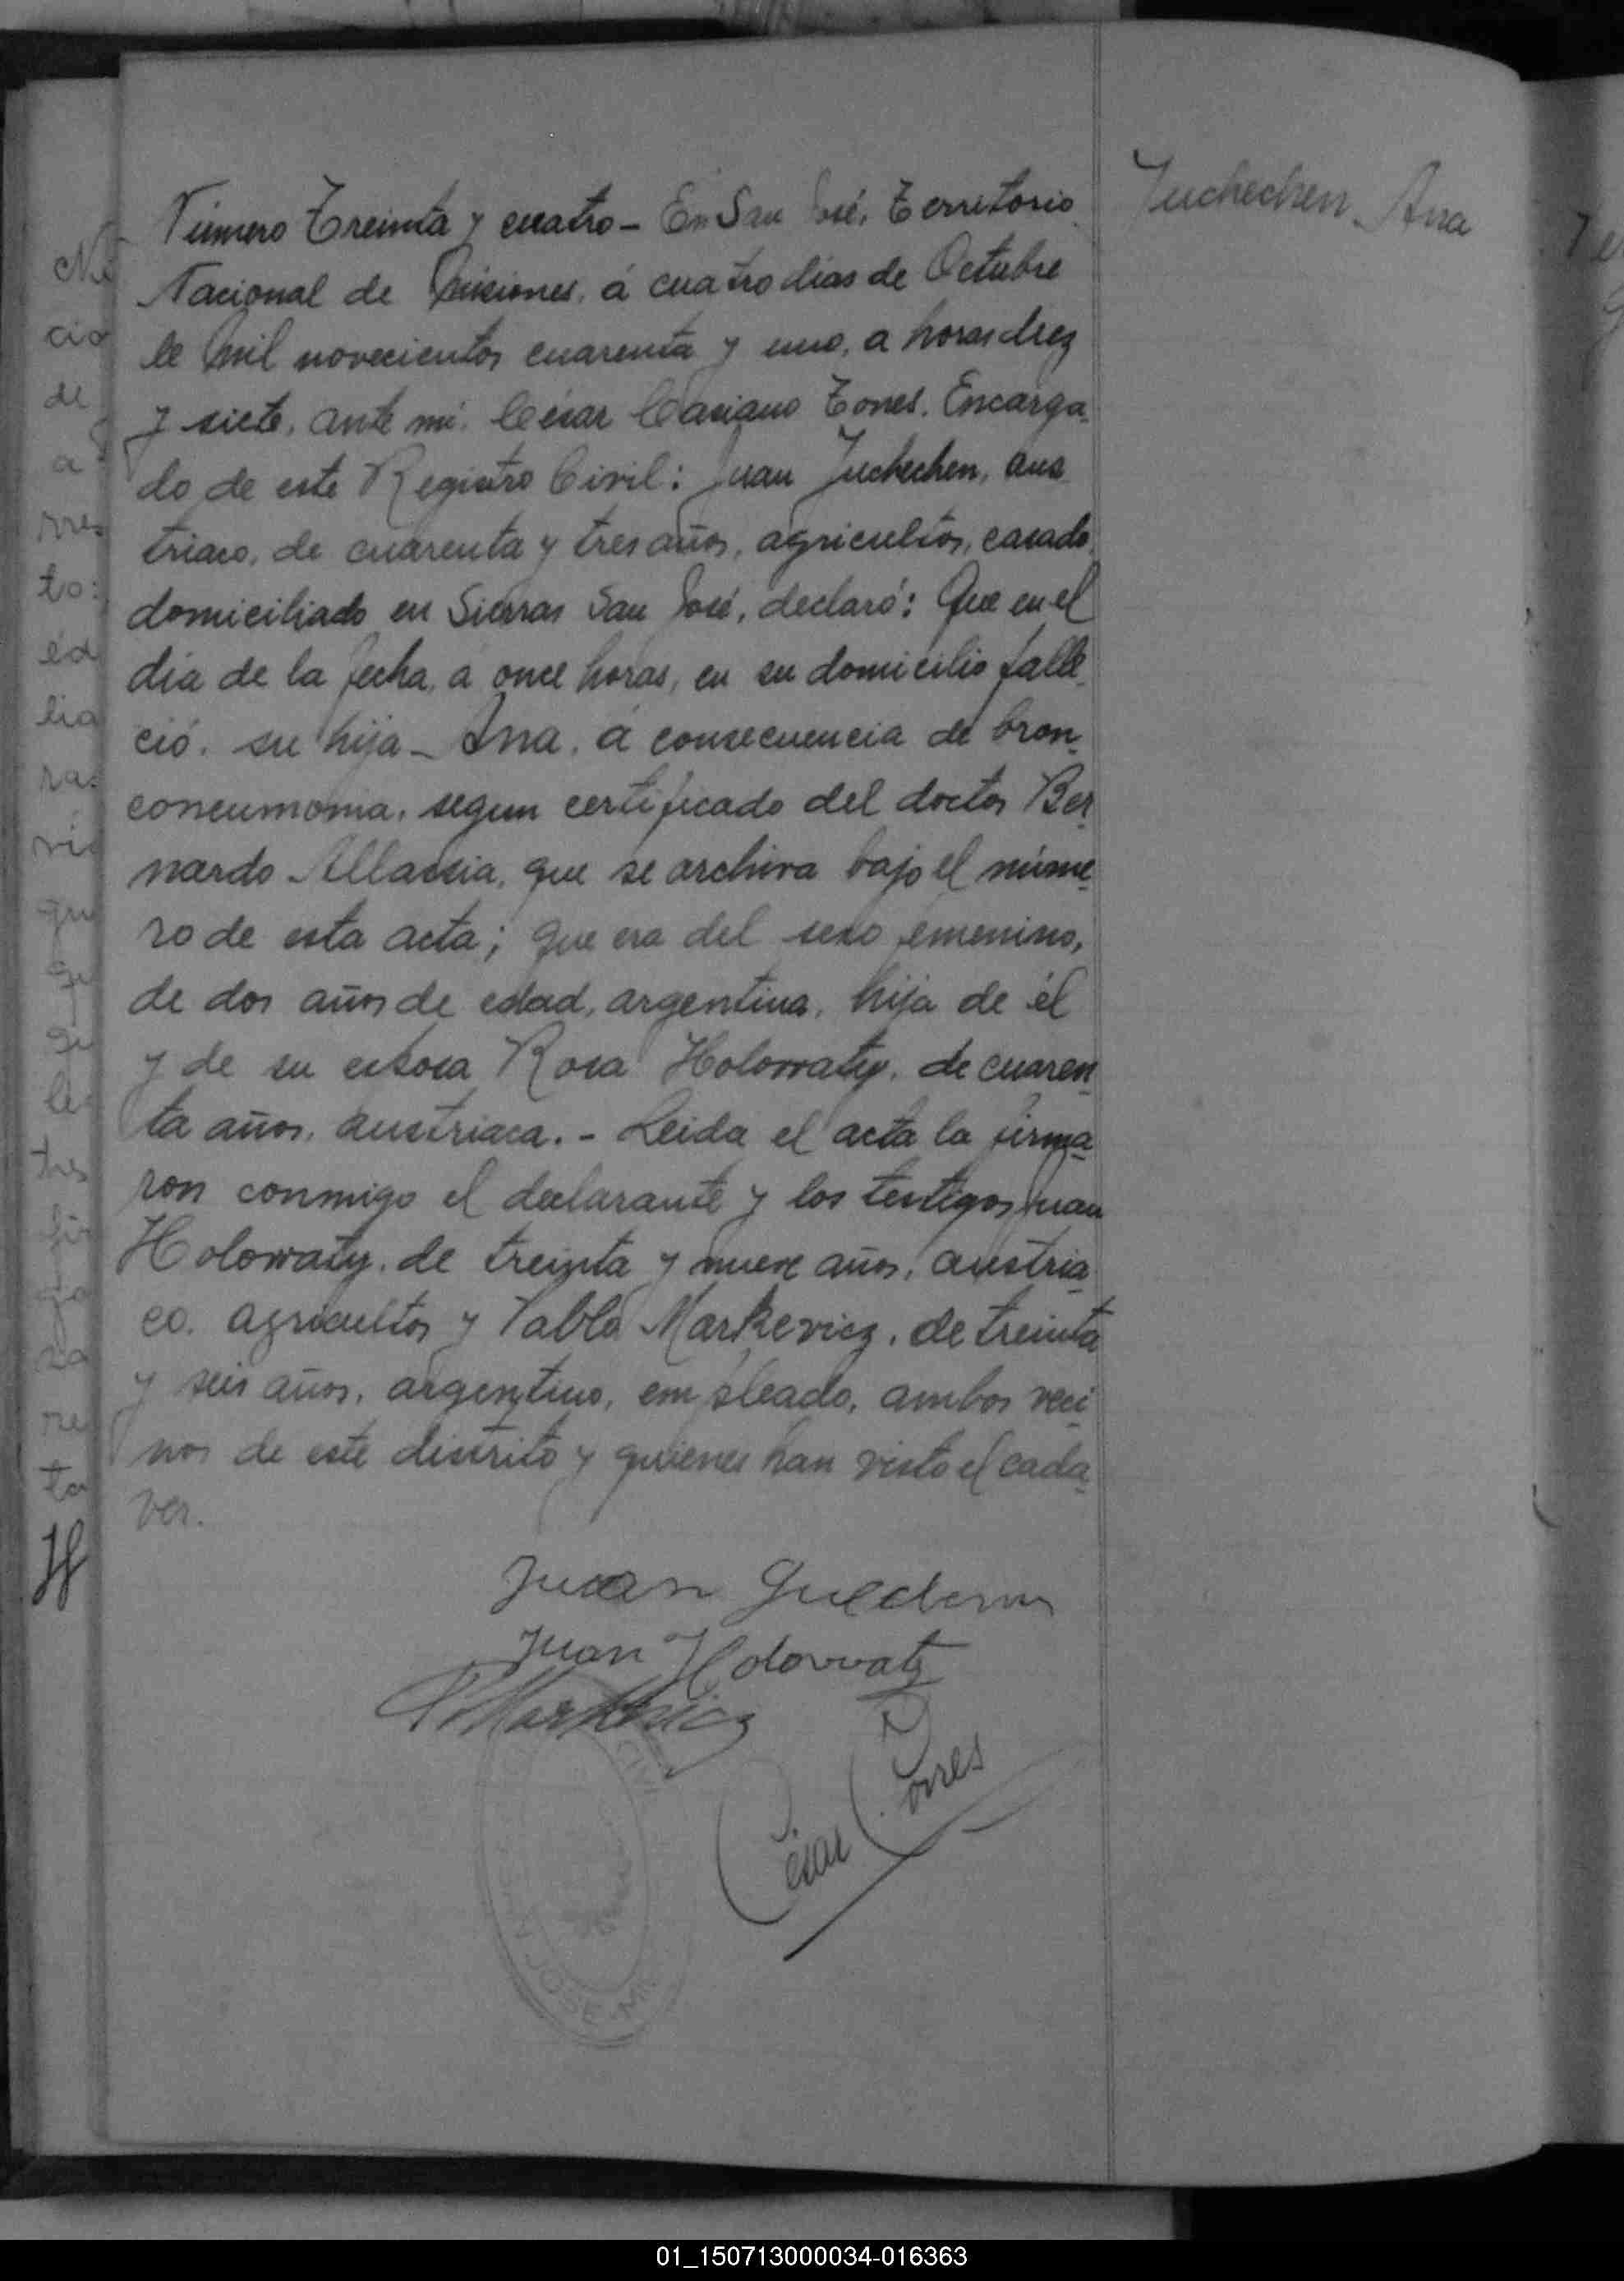 Juchechen Ana
Número Treinta y cuatro - En San José, Territorio
Nacional de Misiones, á cuatro dias de Octubre
de mil novecientos cuarenta y uno, a horas diez
y siete, ante mi: César Casiano Torres, Encarga-
do de este Registro Civil: Juan Juchechen, aus
triaco, de cuarenta y tres años, agricultor, casado,
domiciliado en Sierras San José, declaró: Que en el
dia de la fecha, á once horas, en su domicilio falle-
ció, su hija - Ana, á consecuencia de bron-
coneumonia, segun certificado del doctor Ber-
nardo Allassia, que se archiva bajo el núme-
ro de esta acta; que era del sexo femenino,
de dos años de edad, argentina, hija de él
y de su esposa Rosa Holowaty, de cuaren-
ta años, austriaca. - Leida el acta la firma-
ron conmigo el declarante y los testigos Juan
Holowaty, de treinta y nueve años, austria-
co, agricultor y Pablo Markevicz, de treinta
y seis años, argentino, empleado, ambos veci-
nos de este distrito y quienes han visto el cada-
ver.
Juan
Juan Holowaty
P. Markevicz
César C. Torres
SAN JOSE - MI
01_150713000034-016363